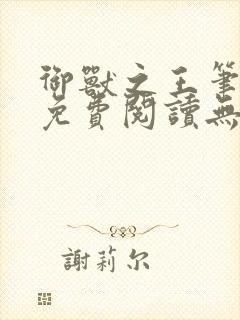 御獸之王筆
免費閱讀無
謝莉尔